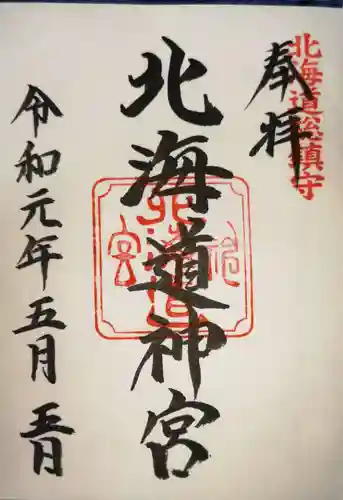 北海道総鎮守
奉拝
北海道神宮
令和元年五月五日